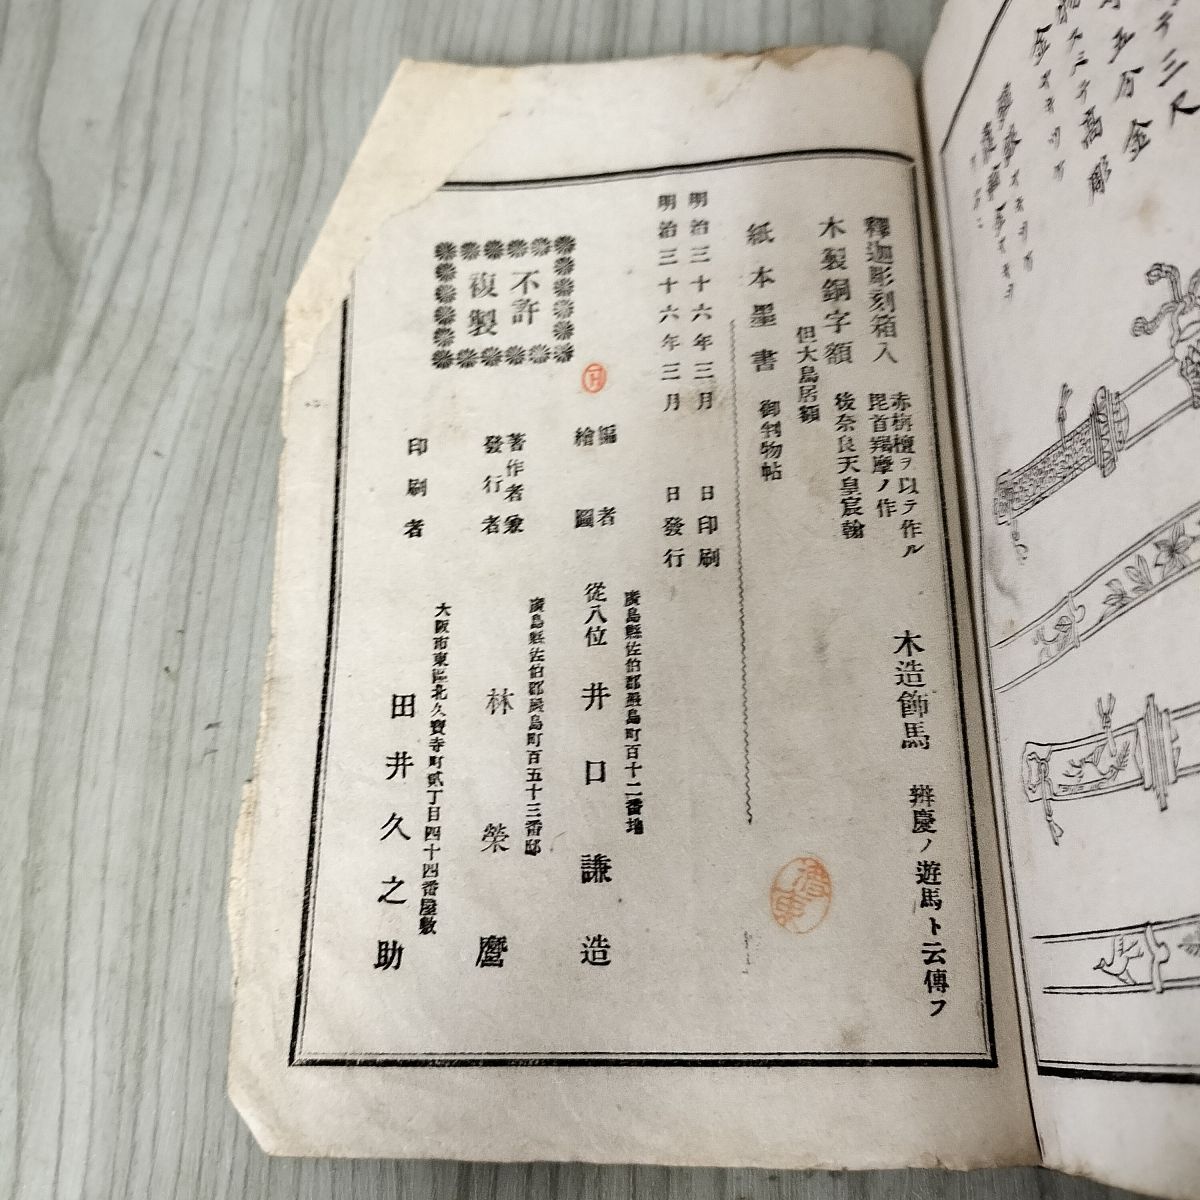 釋迦彫刻箱入
赤栴檀ヲ以テ作ル
毘首羯摩ノ作
木造飾馬
辨慶ノ遊馬ト云傳フ
木製銅字額
後奈良天皇宸翰
但大鳥居額
紙本墨書
御判物帖
明治三十六年三月　日印刷
明治三十六年三月　日發行
不許
複製
編者
繪圖
廣島縣佐伯郡嚴島町百十二番地
從八位 井口謙造
著作者兼
發行者
廣島縣佐伯郡嚴島町百五十三番邸
林榮麿
印刷者
大阪市東區北久寶寺町貳丁目四十四番屋敷
田井久之助